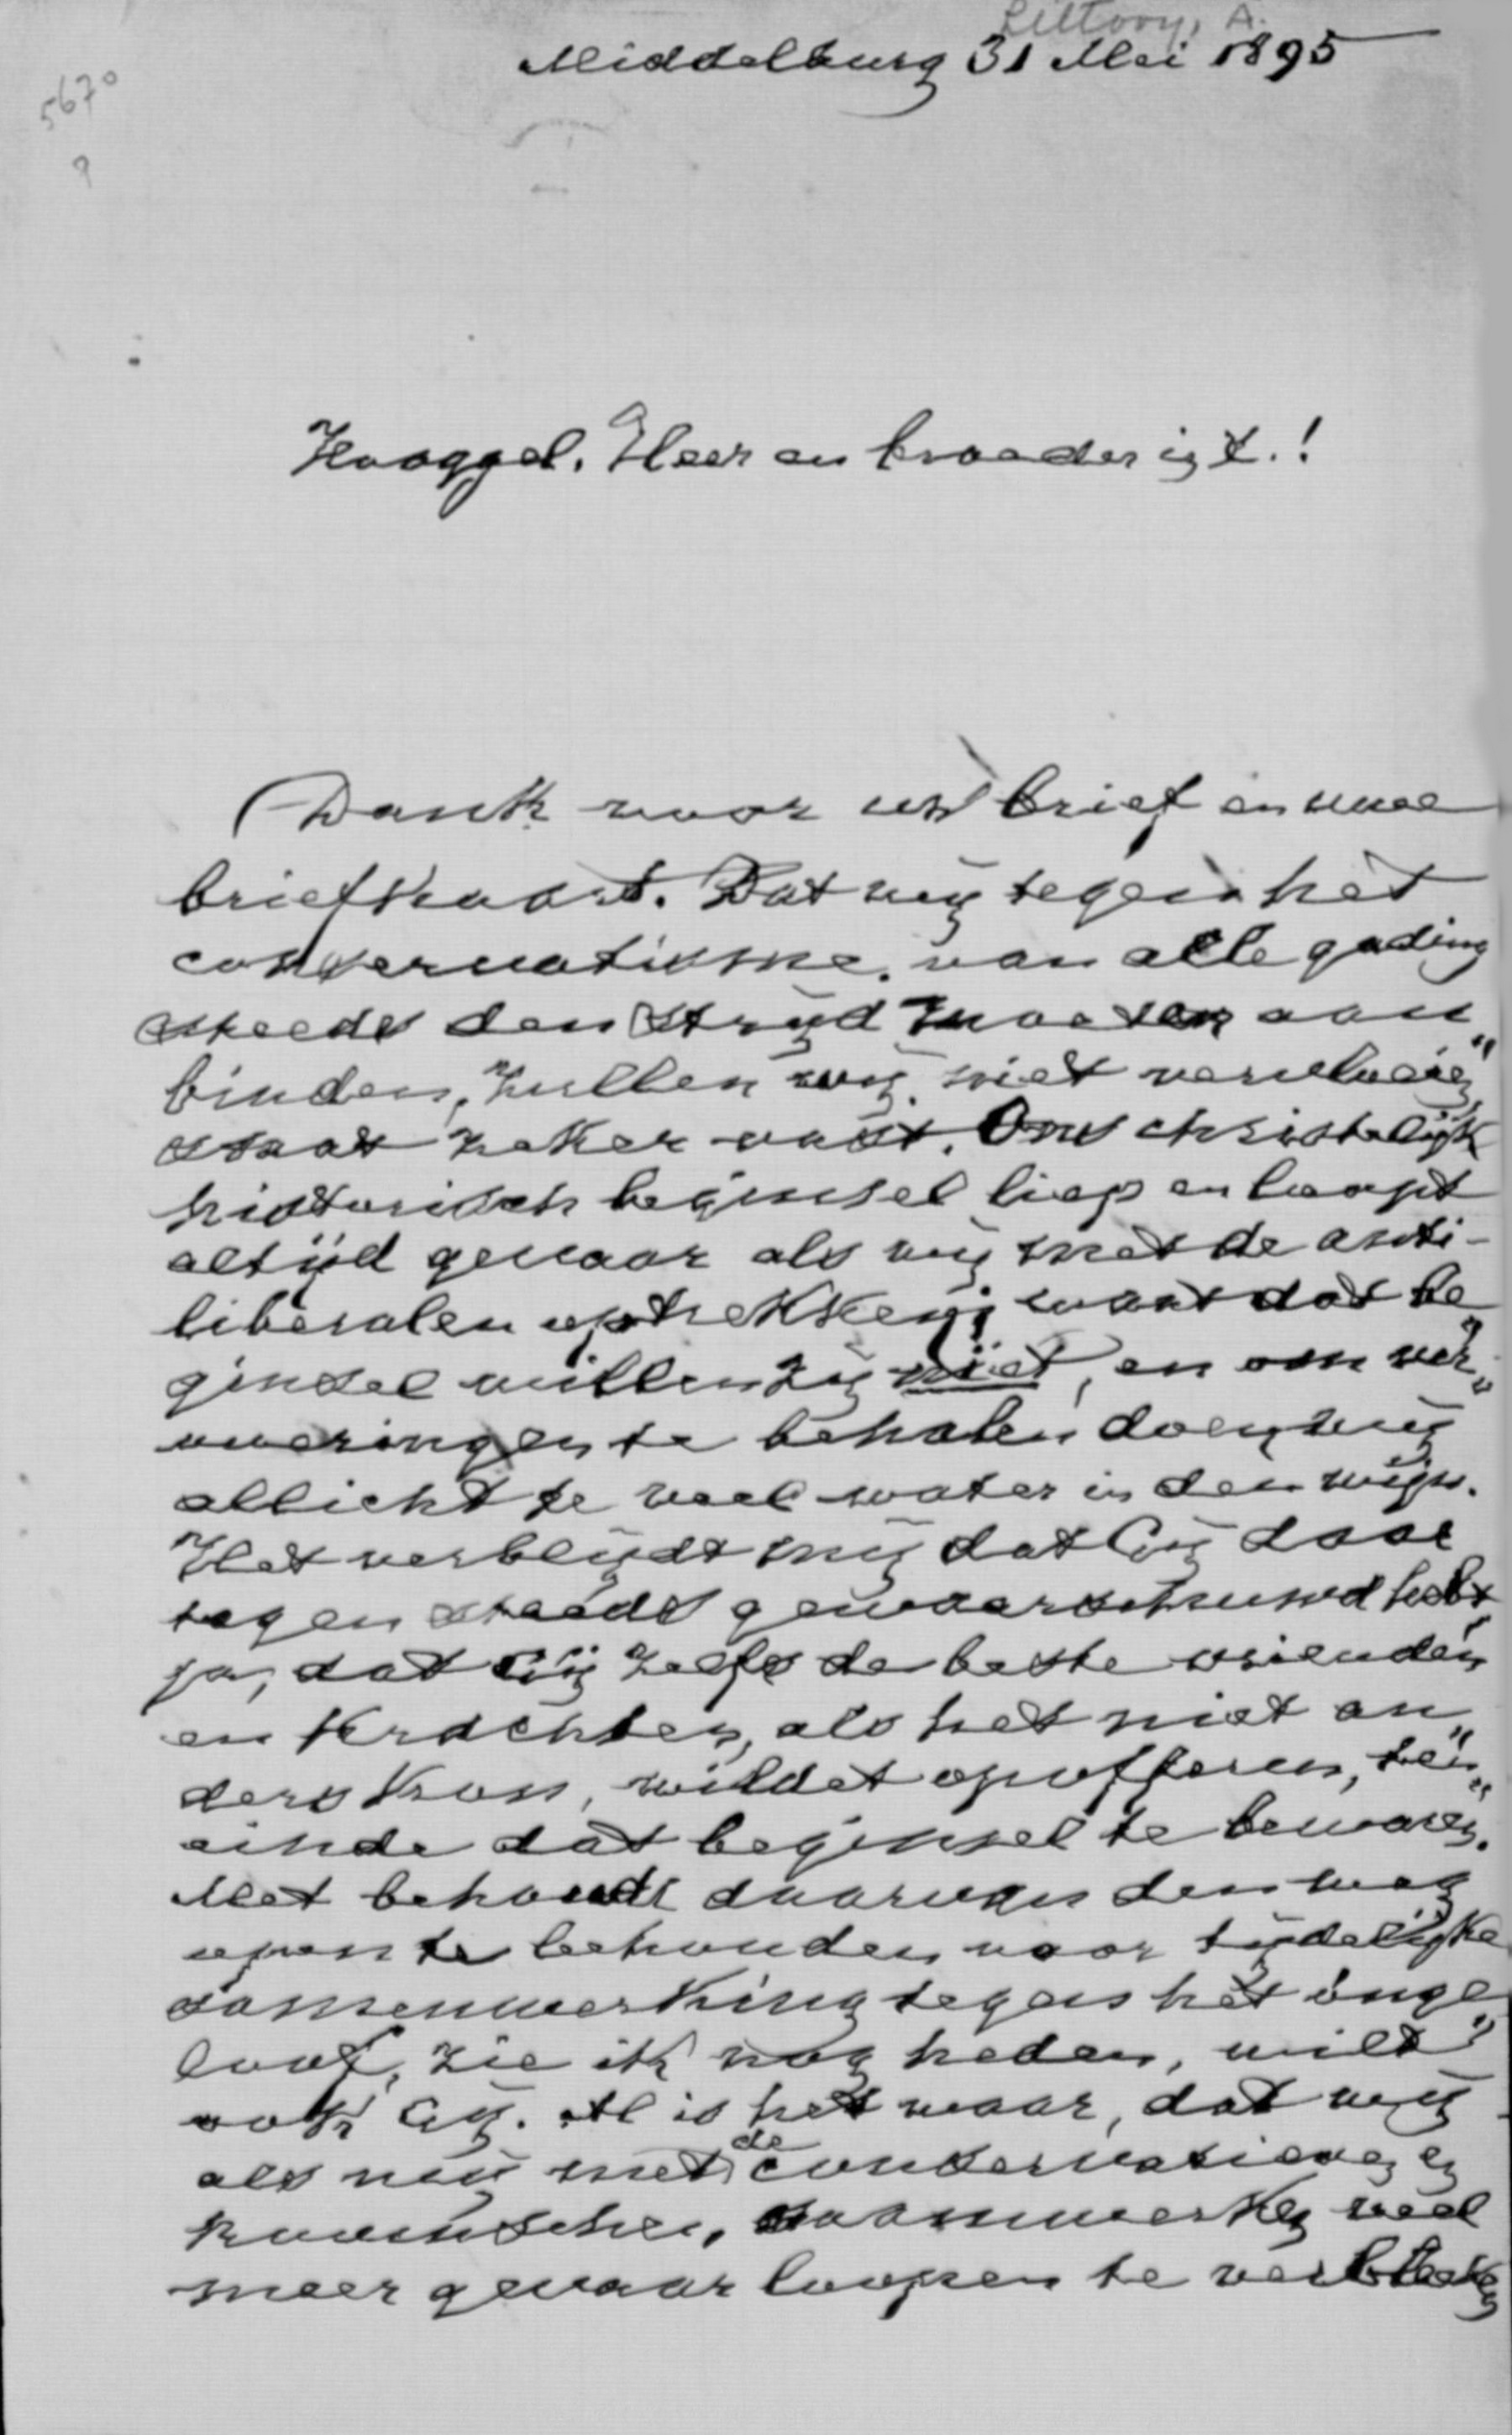 Littooy, A.
Middelburg 31 Mei 1895
5670
?
Hooggel. Heer en broeder i. χ.!
Dank voor uw brief en uwe
briefkaart. Dat wij tegen het
conservatisme van alle gading
steeds den strijd moeten aan
binden, zullen wij niet verwloeie"
staat zeker vast. Ons christelijk
historisch beginsel liep en loopt
altijd gevaar als wij met de anti-
liberalen optrekken; want dat be"
ginsel willen zij niet, en om ver"
overingen te behalen doen wij
allicht te veel water in den wijn.
Het verblijdt mij dat Gij daar
tegen steeds gewaarschuwd hebt
ja, dat Gij zelfs de beste vrienden
en krachten, als het niet an"
ders kon, wildet opofferen, ten"
einde dat beginsel te bewaren.
Met behoudt daarvan den weg
open te behouden voor tijdelijke
samenwerking tegen het onge"
loof, zie ik nog heden, wilt
ook Gij. Al is het waar, dat wij
als wij met de conservatieven en
roomschen, saamwerken veel
meer gevaar loopen te verbleeken